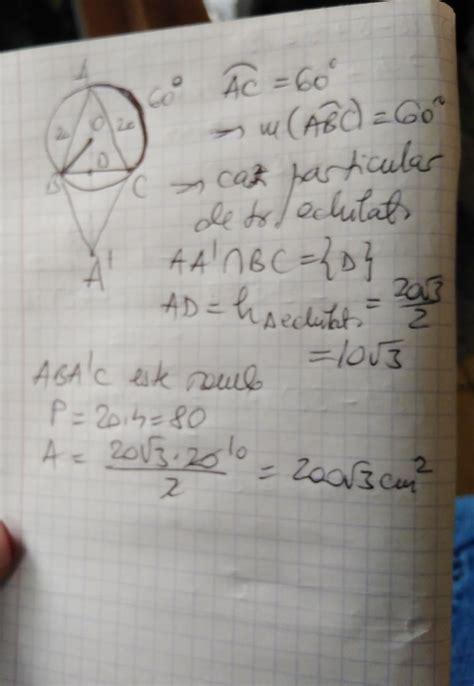 A
60°
20
20
O
B
D
C
A'
⌢AC = 60°
→ m(ABC) = 60°
→ caz particular
de tr. echilat
AA' ∩ BC = {D}
AD = h Δechilat = 20√3/2
= 10√3
ABA'C este romb
P = 20·4 = 80
A = 20√3·20 10/2 = 200√3 cm²